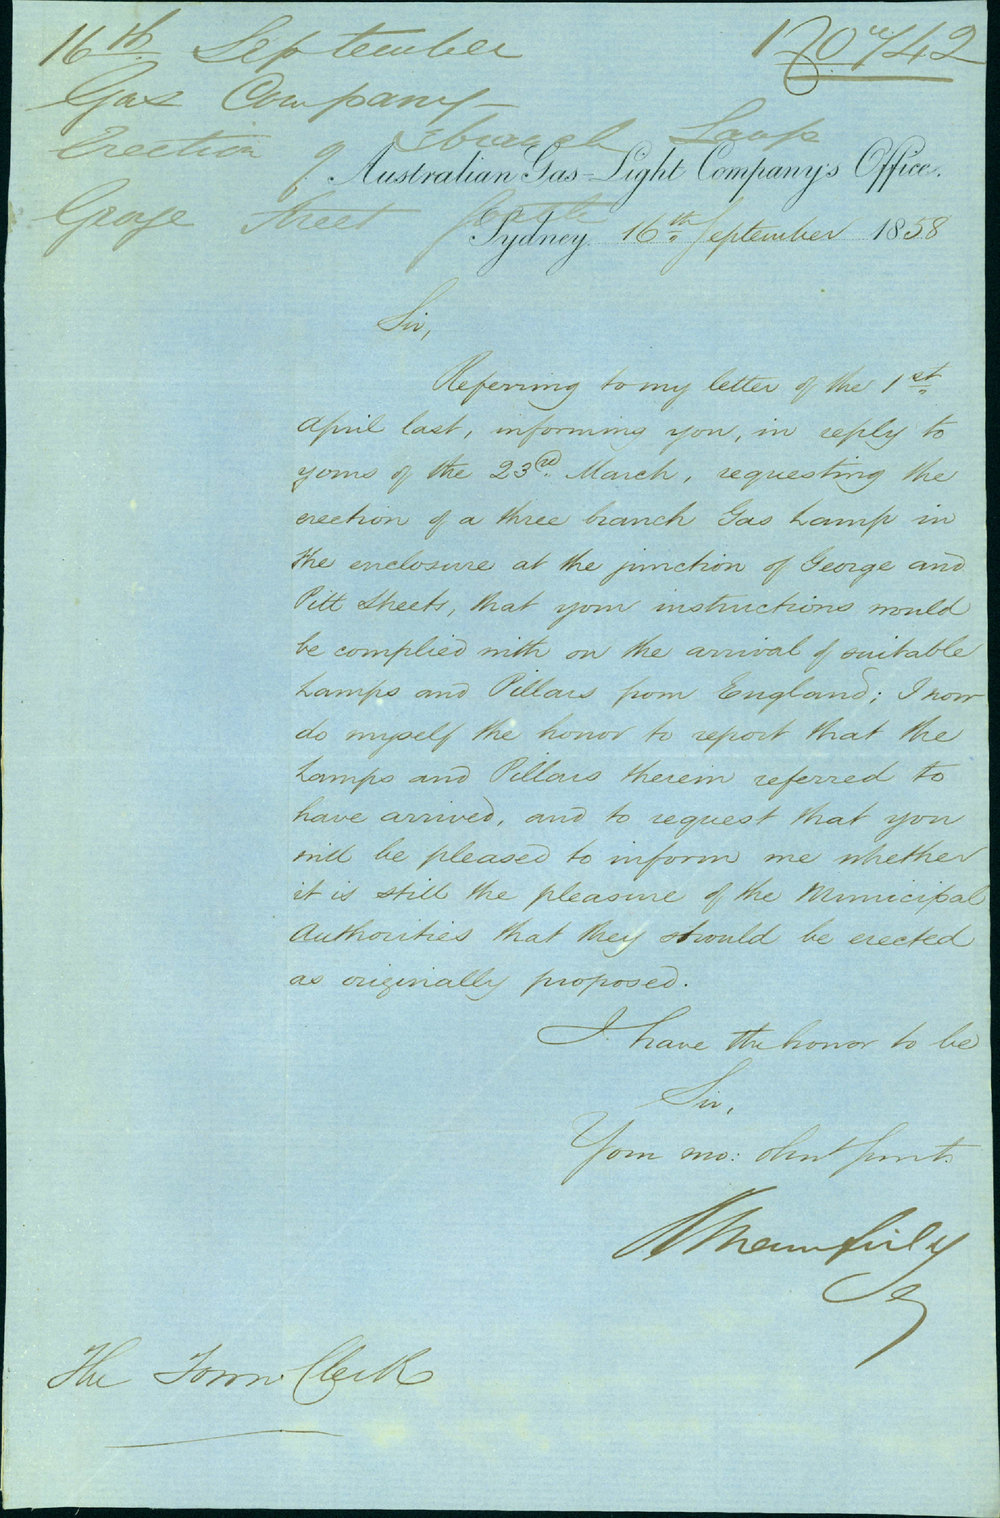 16th September
Gas Company
Erection of 3 branch Lamp
George Street South
Australian Gas-Light Company's Office.
Sydney 16th September 1858
Sir,
Referring to my letter of the 1st
April last, informing you, in reply to
yours of the 23rd March, requesting the
erection of a three branch Gas Lamp in
the enclosure at the junction of George and
Pitt Streets, that your instructions would
be complied with on the arrival of suitable
Lamps and Pillars from England; I now
do myself the honor to report that the
Lamps and Pillars therein referred to
have arrived, and to request that you
will be pleased to inform me whether
it is still the pleasure of the Municipal
Authorities that they should be erected
as originally proposed.
I have the honor to be
Sir,
Your mo: obnt servt.
The Town Clerk